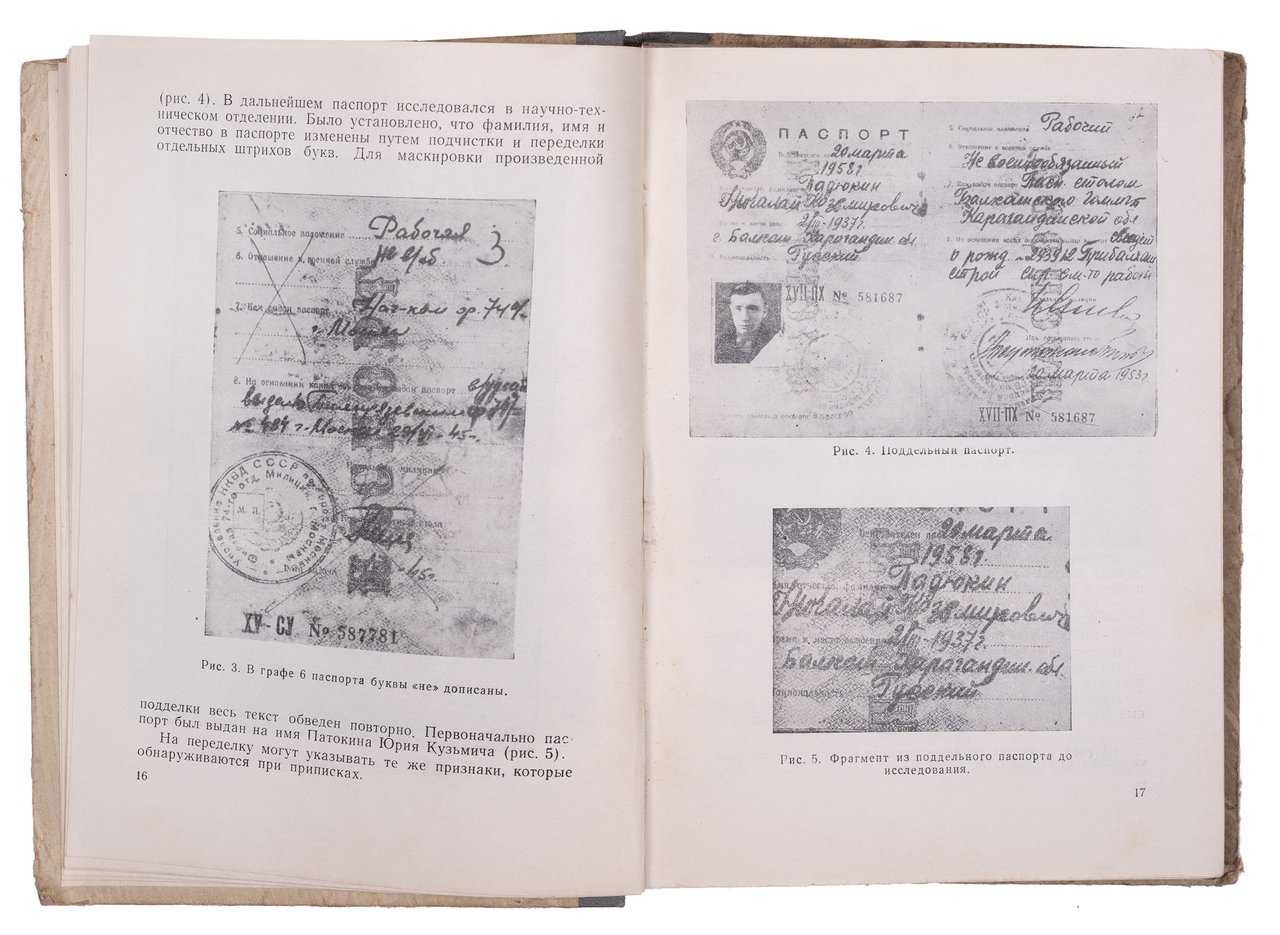 (рис. 4). В дальнейшем паспорт исследовался в научно-тех-
ническом отделении. Было установлено, что фамилия, имя и
отчество в паспорте изменены путем подчистки и переделки
отдельных штрихов букв. Для маскировки произведенной
5. Социальное положение Рабочая
3
6. Отношение к военной службе Не в/об
7. Кем выдан паспорт Нач-ком ор. 74 о/м
г. Москвы
8. На основании каких выдан паспорт
выдан
№ 484 г. Москвы 45 г.
Управление НКВД СССР по городу Москве
74-го отд. Милиции г. Москвы
М. П.
45 г.
ПАСПОРТ
XV-СУ № 587781
Рис. 3. В графе 6 паспорта буквы «не» дописаны.
подделки весь текст обведен повторно. Первоначально пас-
порт был выдан на имя Патокина Юрия Кузьмича (рис. 5).
На переделку могут указывать те же признаки, которые
обнаруживаются при приписках.
16
ПАСПОРТ
Действителен по 20 марта
1958 г.
Падюкин
1937 г.
г. Балхаш Карагандин. обл.
XVII-ПХ № 581687
5. Социальное положение Рабочий
6. Отношение к военной службе
Не военнообязанный
7. Кем выдан паспорт Пасп. столом
Балхашского
Карагандинской обл
8. На основании каких выдан паспорт
о рожд.
работы
20 марта 1953 г.
XVII-ПХ № 581687
Рис. 4. Поддельный паспорт.
Действителен по 20 марта
1958 г.
Падюкин
1937 г.
Балхаш Карагандин. обл.
Рис. 5. Фрагмент из поддельного паспорта до
исследования.
17